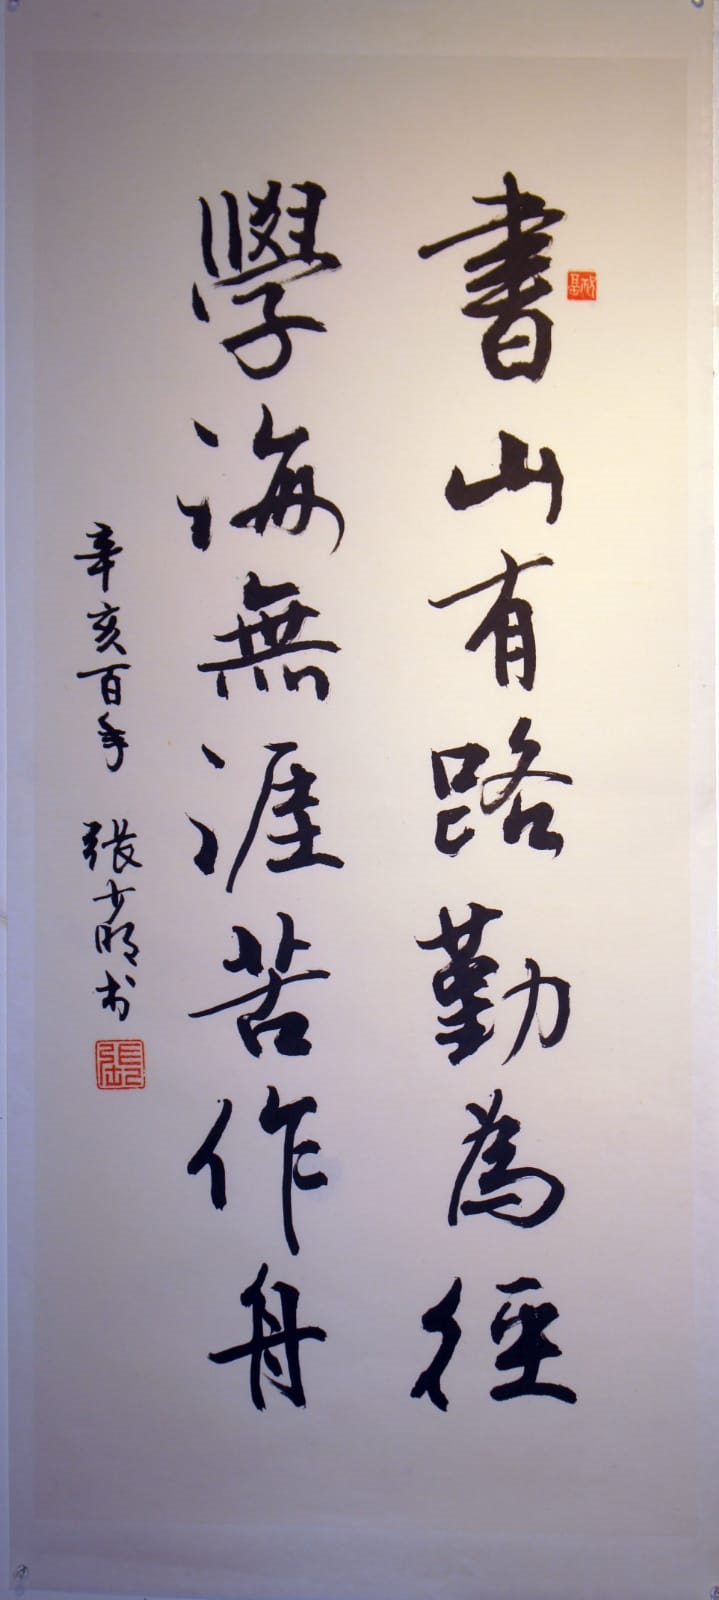 書山有路勤為徑
學海無涯苦作舟
辛亥百年 張少明书